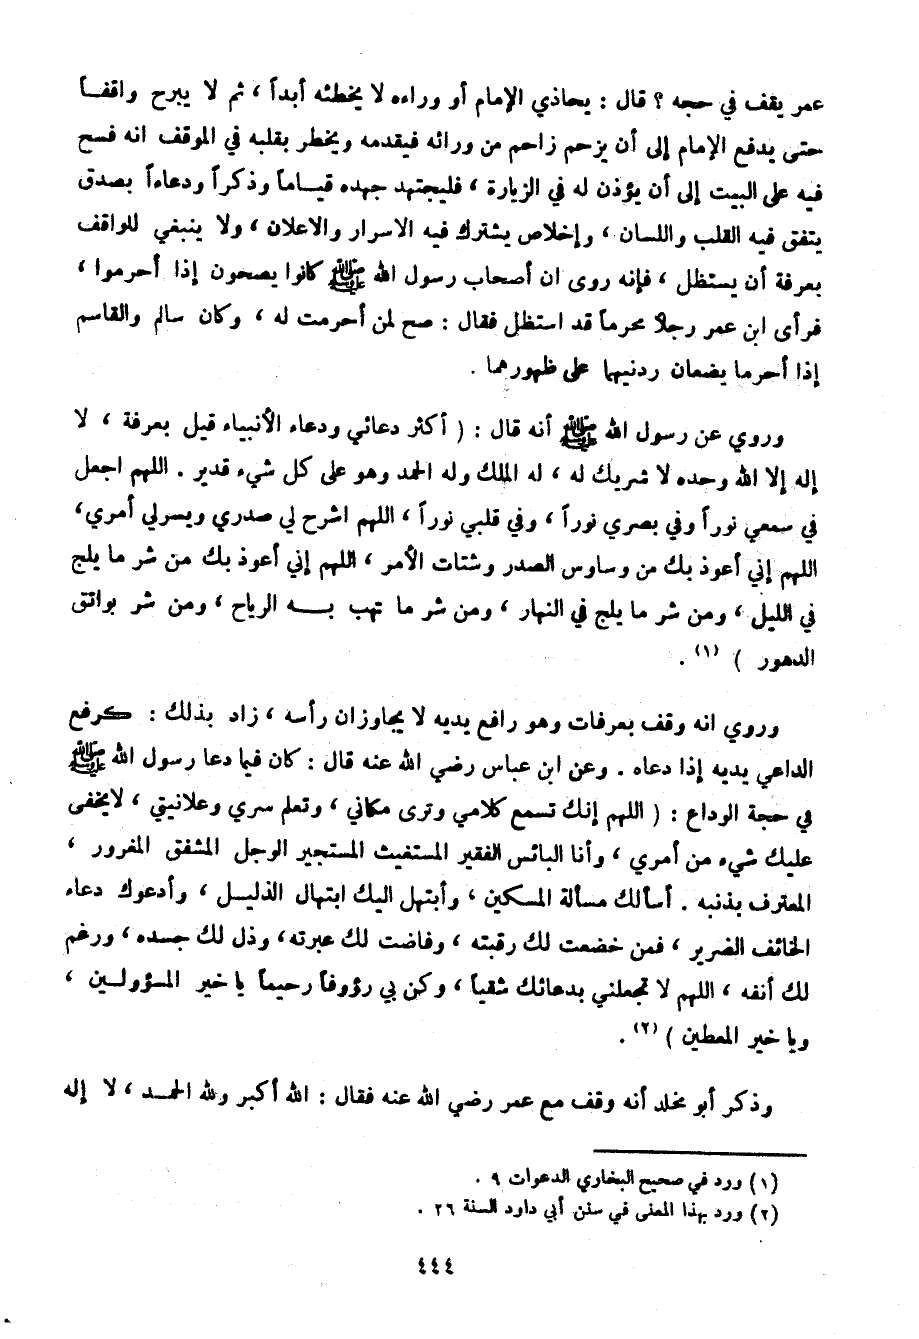 عمر يقف في حجه ؟ قال : يحاذي الإمام أو وراءه لا يخطئه أبداً ، ثم لا يبرح واقفـاً
حتى يدفع الإمام إلى أن يزحم زاحم من ورائه فيقدمه ويخطر بقلبه في الموقف انه فسح
فيه على البيت إلى أن يؤذن له في الزيارة ، فليجتهد جهده قيـاماً وذكراً ودعاءاً بصدق
يتفق فيه القلب واللسان ، وإخلاص يشترك فيه الاسرار والاعلان ، ولا ينبغي للواقف
بعرفة أن يستظل ، فإنه روى ان أصحاب رسول الله ﷺ كانوا يصحون إذا أحرموا ،
فرأى ابن عمر رجلاً محرماً قد استظل فقال : صح لمن أحرمت له ، وكان سالم والقاسم
إذا أحرما يضعان ردنيهما على ظهورهما .
وروي عن رسول الله ﷺ أنه قال : ( أكثر دعائي ودعاء الأنبياء قيل بعرفة ، لا
إله إلا الله وحده لا شريك له ، له الملك وله الحمد وهو على كل شيء قدير . اللهم اجعل
في سمعي نوراً وفي بصري نوراً ، وفي قلبي نوراً ، اللهم اشرح لي صدري ويسر لي أمري ،
اللهم إني أعوذ بك من وساوس الصدر وشتات الأمر ، اللهم إني أعوذ بك من شر ما يلج
في الليل ، ومن شر ما يلج في النهار ، ومن شر ما تهب بـــه الرياح ، ومن شر بوائق
الدهور ) (١) .
وروي انه وقف بعرفات وهو رافع يديه لا يجاوزان رأسه ، زاد بذلك : كرفع
الداعي يديه إذا دعاه . وعن ابن عباس رضي الله عنه قال : كان فيما دعا رسول الله ﷺ
في حجة الوداع : ( اللهم إنك تسمع كلامي وترى مكاني ، وتعلم سري وعلانيتي ، لا يخفى
عليك شيء من أمري ، وأنا البائس الفقير المستغيث المستجير الوجل المشفق المغرور ،
المعترف بذنبه . أسألك مسألة المسكين ، وأبتهل اليك ابتهال الذليـل ، وأدعوك دعاء
الخائف الضرير ، فمن خضعت لك رقبته ، وفاضت لك عبرته ، وذل لك جسده ، ورغم
لك أنفه ، اللهم لا تجعلني بدعائك شقياً ، وكن بي رؤوفاً رحيماً يا خير المسؤولـين ،
ويا خير المعطين ) (٢) .
وذكر أبو مخلد أنه وقف مع عمر رضي الله عنه فقال : الله أكبر ولله الحمـد ، لا إله
(١) ورد في صحيح البخاري الدعوات ٩ .
(٢) ورد بهذا المعنى في سنن أبي داود السنة ٢٦ .
٤٤٤